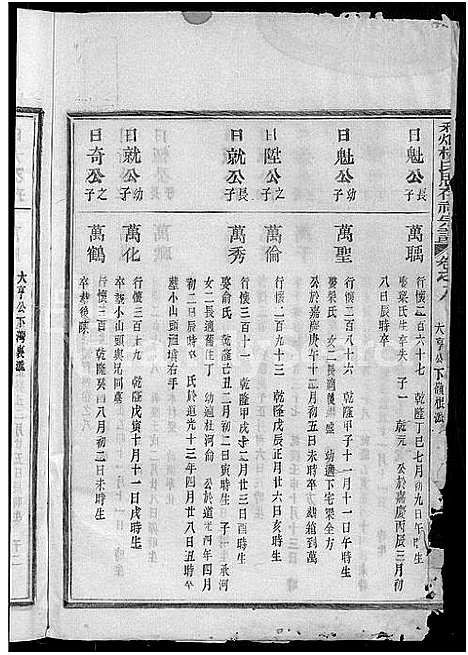 大亨公下嶺根派
日魁公長子
萬瑀
行懷二百六十七 乾隆丁巳七月初九日午時生
娶梁氏生卒失 子一 乾元 公於嘉慶丙辰三月初
八日辰時卒
日魁公幼子
萬聖
行懷二百八十六 乾隆甲子十一月十一日午時生
娶梁氏 女二長適 盛 幼適下宅梁全方
公於嘉慶庚午十二月初五日未時卒
日陞公之子
萬倫
行懷三百 乾隆戊辰正月廿六日亥時生
日就公長子
萬秀
行懷三百十一 乾隆甲戌十二月廿三日酉時生
娶俞氏 乾隆丁丑二月初二日寅時生 子一 承河
女二長適舊住丁 幼適杜河俞 公於道光四年四月
初二日巳時卒 氏於道光十三年四月廿八日丑時卒
墓小山頭迴塘右手
日就公幼子
萬化
行懷三百十九 乾隆戊寅十月十一日戌時生
卒墓小山頭與兄同墓
日奇公之子
萬鶴
行懷二百九十 乾隆癸酉八月初二日未時生
卒墓後蔭
大亨公下灣裏派